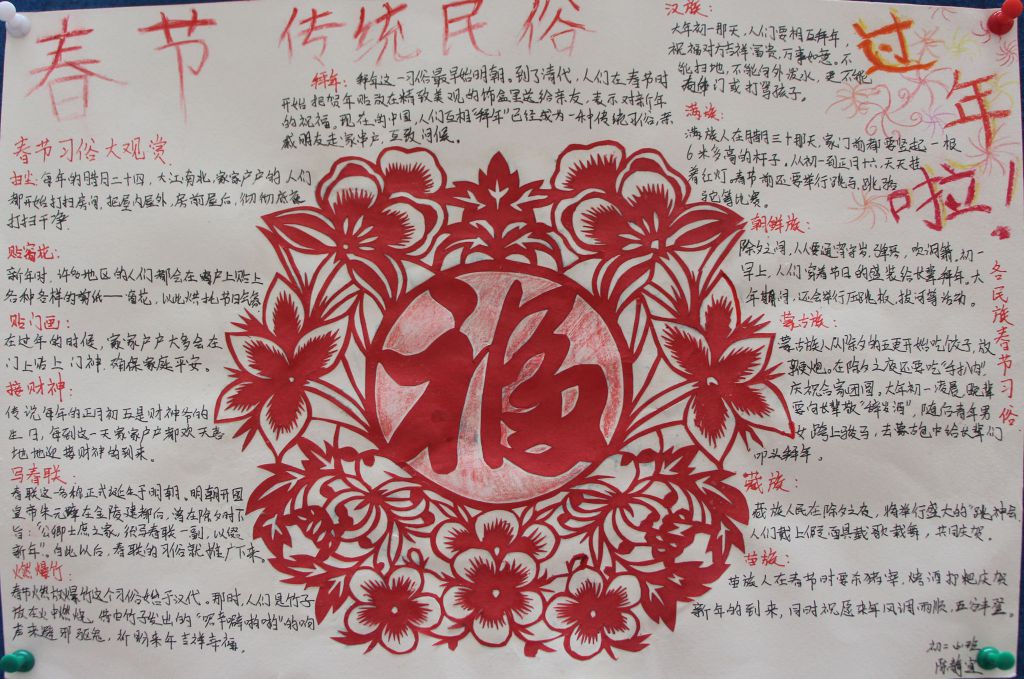 春节传统民俗
过年啦！
拜年：拜年这一习俗最早始明朝。到了清代，人们在春节时
开始把贺年贴放在精致美观的饰盒里送给亲友，表示对新年
的祝福。现在的中国，人们互相“拜年”已经成为一种传统习俗，亲
戚朋友走家串户，互致问候。
春节习俗大观赏
扫尘：每年的腊月二十四，大江南北，家家户户的人们
都开始打扫房间，把屋内屋外，房前屋后，彻彻底底
打扫干净
贴窗花：
新年时，许多地区的人们都会在窗户上贴上
各种各样的剪纸——窗花，以此烘托节日气氛
贴门画：
在过年的时候，家家户户大多会在
门上贴上门神，确保家庭平安。
接财神：
传说每年的正月初五是财神爷的
生日，每到这一天家家户户都欢天喜
地地迎接财神的到来。
写春联：
春联这一名称正式诞生于明朝。明朝开国
皇帝朱元璋在金陵建都后，曾在除夕时下
旨：“公卿士庶之家，须写春联一副，以缀
新年”。自此以后，春联的习俗就推广下来。
燃爆竹：
春节燃放爆竹这个习俗始于汉代。那时，人们是竹子
放在火中燃烧，借由竹子发出的“噼噼啪啪”的响
声来避邪驱鬼，祈盼来年吉祥幸福。
福
汉族：
大年初一那天，人们要相互拜年，
祝福对方吉祥富贵，万事如意。不
能扫地，不能向外泼水，更不能
门或打骂孩子。
满族：
满族人在腊月三十那天，家门前都要竖起一根
6米多高的杆子，从初一到正月十六，天天挂
着红灯。春节前还要举行跳马、跳骆
驼等比赛。
各民族春节习俗
朝鲜族：
除夕之间，人人要通宵守岁，弹琴，吹洞箫，初一
早上，人们穿着节日的盛装给长辈拜年。大
年期间，还会举行压跳板，拔河等活动。
蒙古族：
蒙古族人从除夕的五更开始吃饺子，放
鞭炮。在除夕之夜还要吃“手扒肉”
庆祝合家团圆。大年初一凌晨晚辈
要向长辈敬“辞岁酒”，随后青年男
女跨上骏马，去蒙古包中给长辈们
叩头拜年。
藏族：
藏族人民在除夕之夜，将举行盛大的“跳神会”
人们戴上假面具载歌载舞，共同庆贺。
苗族：
苗族人在春节时要杀猪宰，烤酒打粑庆贺
新年的到来，同时祝愿来年风调雨顺，五谷丰登。